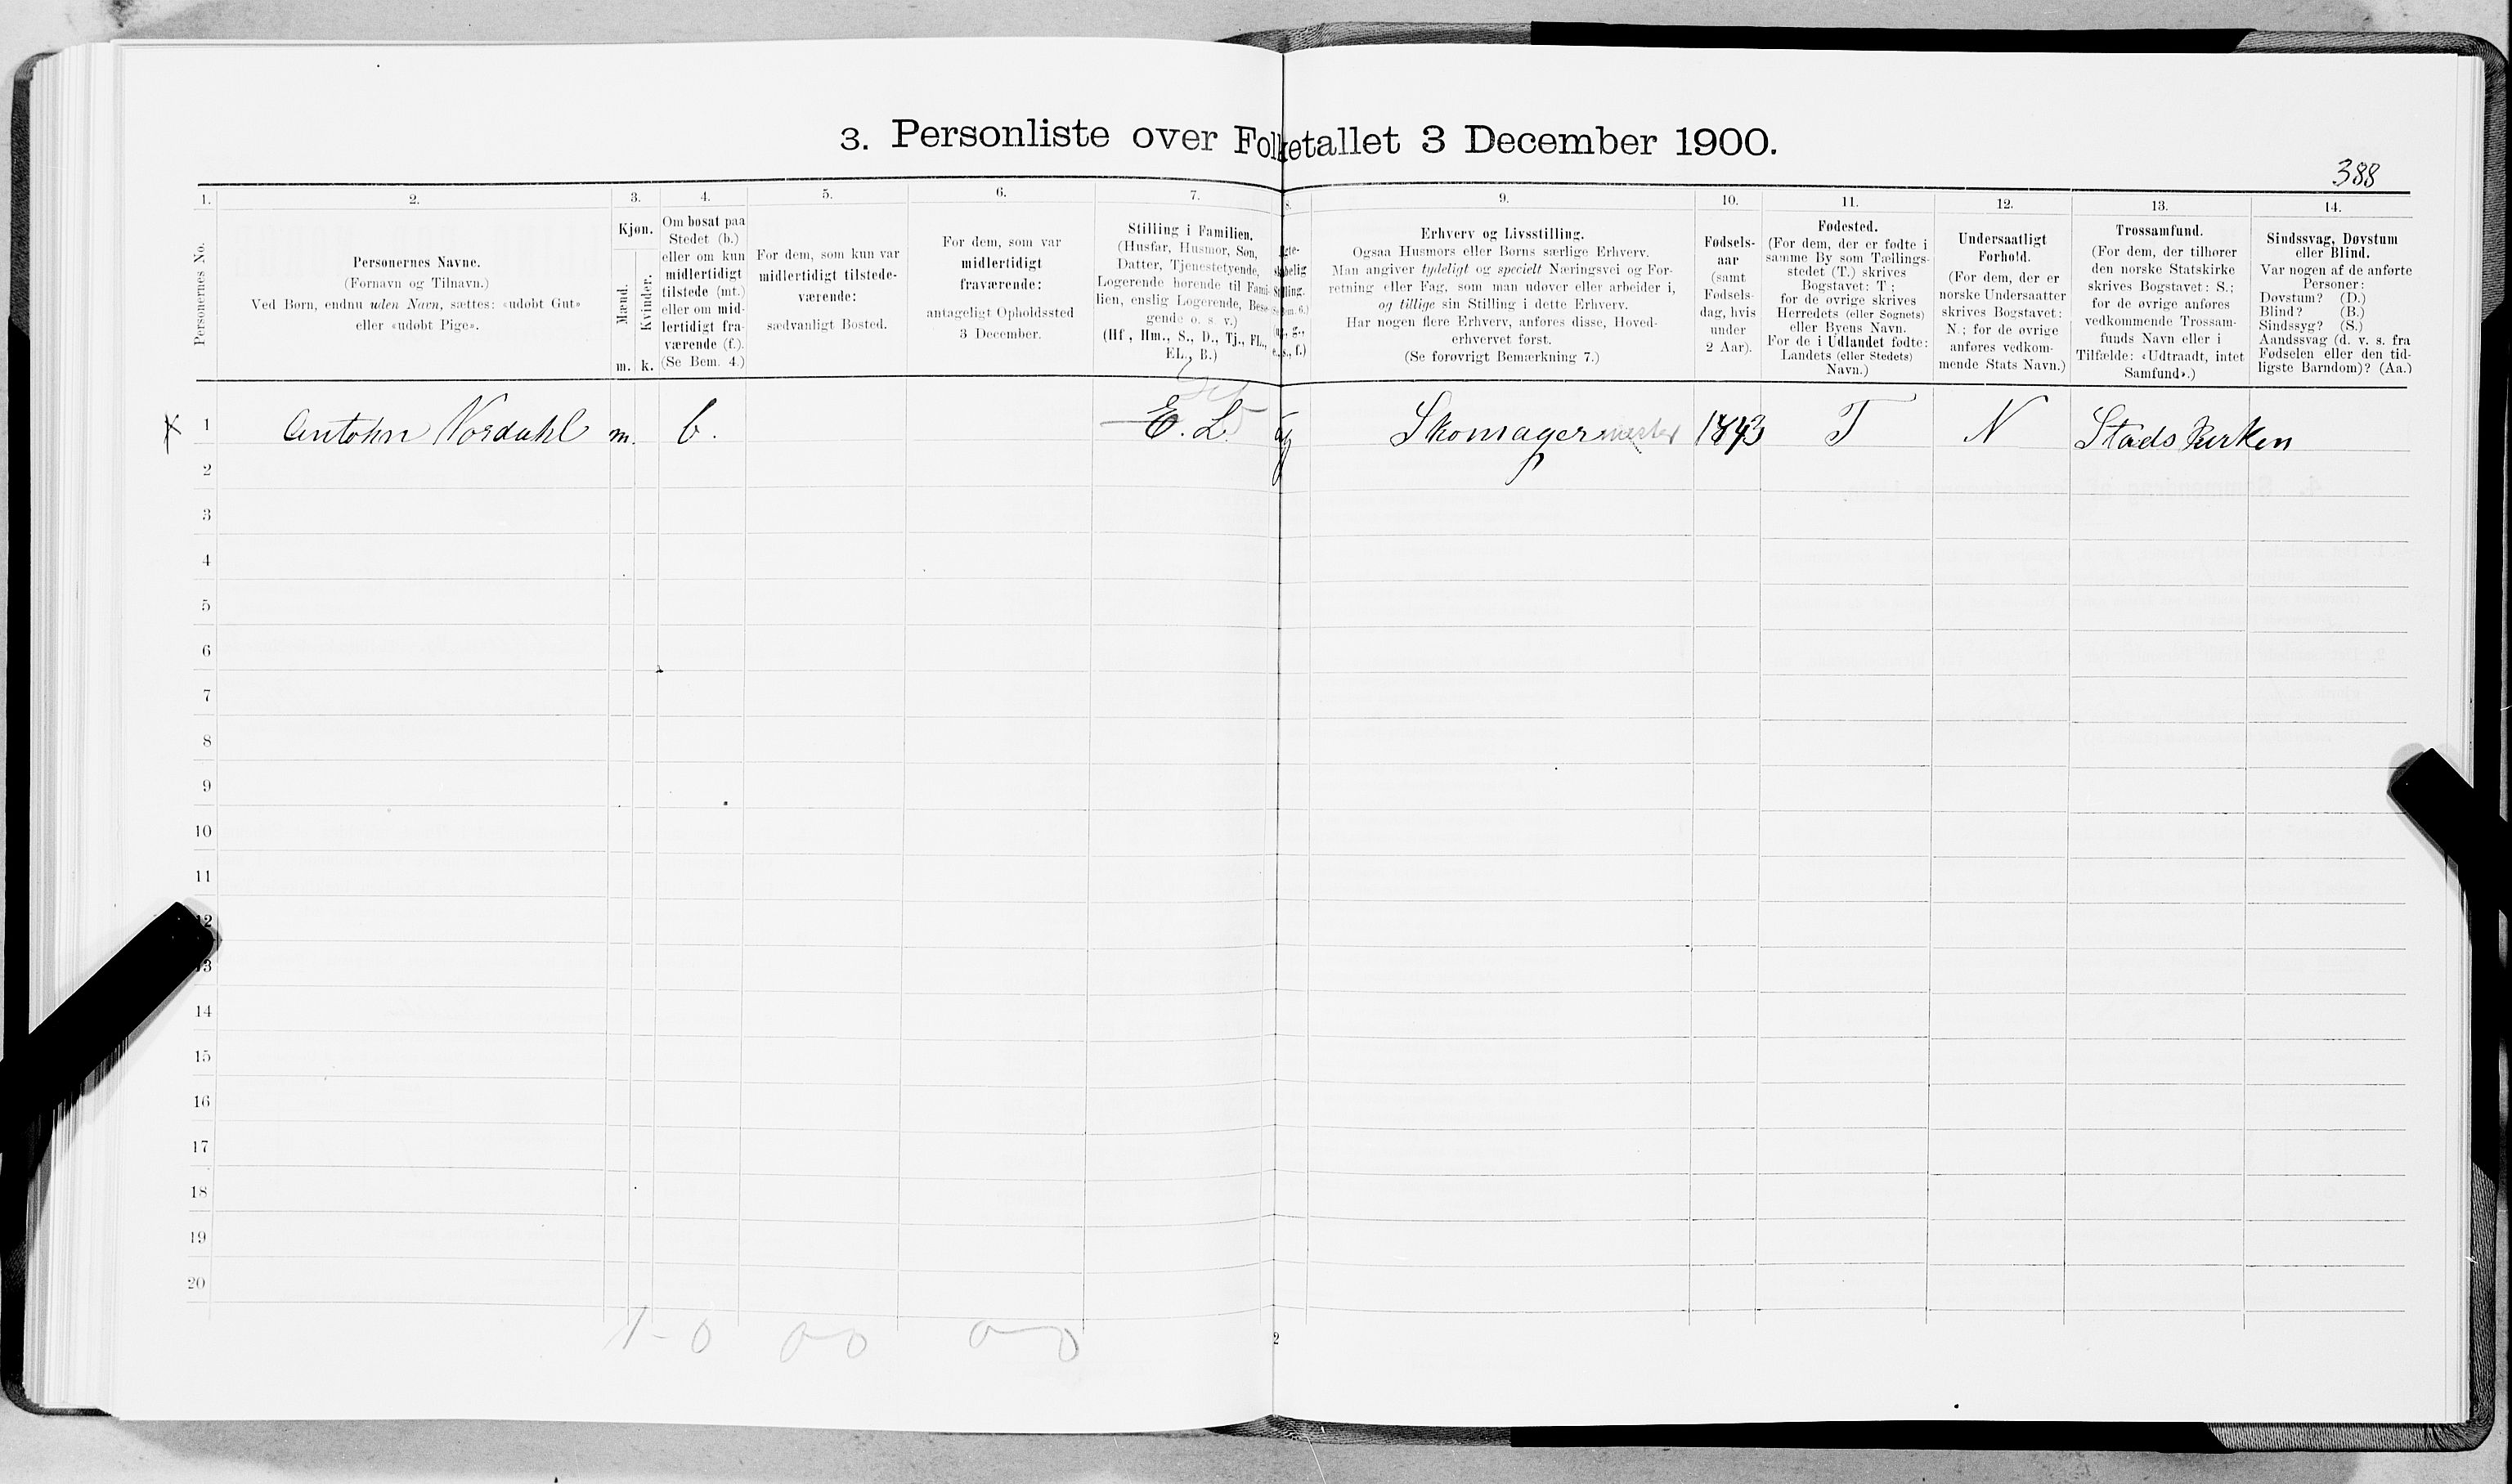 3. Personliste over Folketallet 3 December 1900.
388
1.
2.
3.
4.
5.
6.
7.
8.
9.
10.
11.
12.
13.
14.
Personernes No.
Personernes Navne.
(Fornavn og Tilnavn.)
Ved Børn, endnu uden Navn, sættes: «udøbt Gut»
eller «udøbt Pige».
Kjøn.
Mænd.
Kvinder.
m.
k.
Om bosat paa
Stedet (b.)
eller om kun
midlertidigt
tilstede (mt.)
eller om mid-
lertidigt fra-
værende (f.).
(Se Bem. 4.)
For dem, som kun var
midlertidigt tilstede-
værende:
sædvanligt Bosted.
For dem, som var
midlertidigt
fraværende:
antageligt Opholdssted
3 December.
Stilling i Familien.
(Husfar, Husmor, Søn,
Datter, Tjenestetyende,
Logerende hørende til Fami-
lien, enslig Logerende, Besø-
gende o. s. v.)
(Hf., Hm., S., D., Tj., FL.,
EL., B.)
gte-
belig
lling.
Bem. 6.)
g.,
e., s., f.)
Erhverv og Livsstilling.
Ogsaa Husmors eller Børns særlige Erhverv.
Man angiver tydeligt og specielt Næringsvei og For-
retning eller Fag, som man udøver eller arbeider i,
og tillige sin Stilling i dette Erhverv.
Har nogen flere Erhverv, anføres disse, Hoved-
erhvervet først.
(Se forøvrigt Bemærkning 7.)
Fødsels-
aar
(samt
Fødsels-
dag, hvis
under
2 Aar).
Fødested.
(For dem, der er fødte i
samme By som Tællings-
stedet (T.) skrives
Bogstavet: T;
for de øvrige skrives
Herredets (eller Sognets)
eller Byens Navn.
For de i Udlandet fødte:
Landets (eller Stedets)
Navn.)
Undersaatligt
Forhold.
(For dem, der er
norske Undersaatter
skrives Bogstavet:
N.; for de øvrige
anføres vedkom-
mende Stats Navn.)
Trossamfund.
(For dem, der tilhører
den norske Statskirke
skrives Bogstavet: S.;
for de øvrige anføres
vedkommende Trossam-
funds Navn eller i
Tilfælde: «Udtraadt, intet
Samfund».)
Sindssvag, Døvstum
eller Blind.
Var nogen af de anførte
Personer:
Døvstum? (D.)
Blind? (B.)
Sindssyg? (S.)
Aandssvag (d. v. s. fra
Fødselen eller den tid-
ligste Barndom)? (Aa.)
x 1 Antohn Nordahl m. b. E. L. ug Skomagermester 1843 T N Stadskirken
2
3
4
5
6
7
8
9
10
11
12
13
14
15
16
17
18
19
20
1-0 0-0 0-0
2